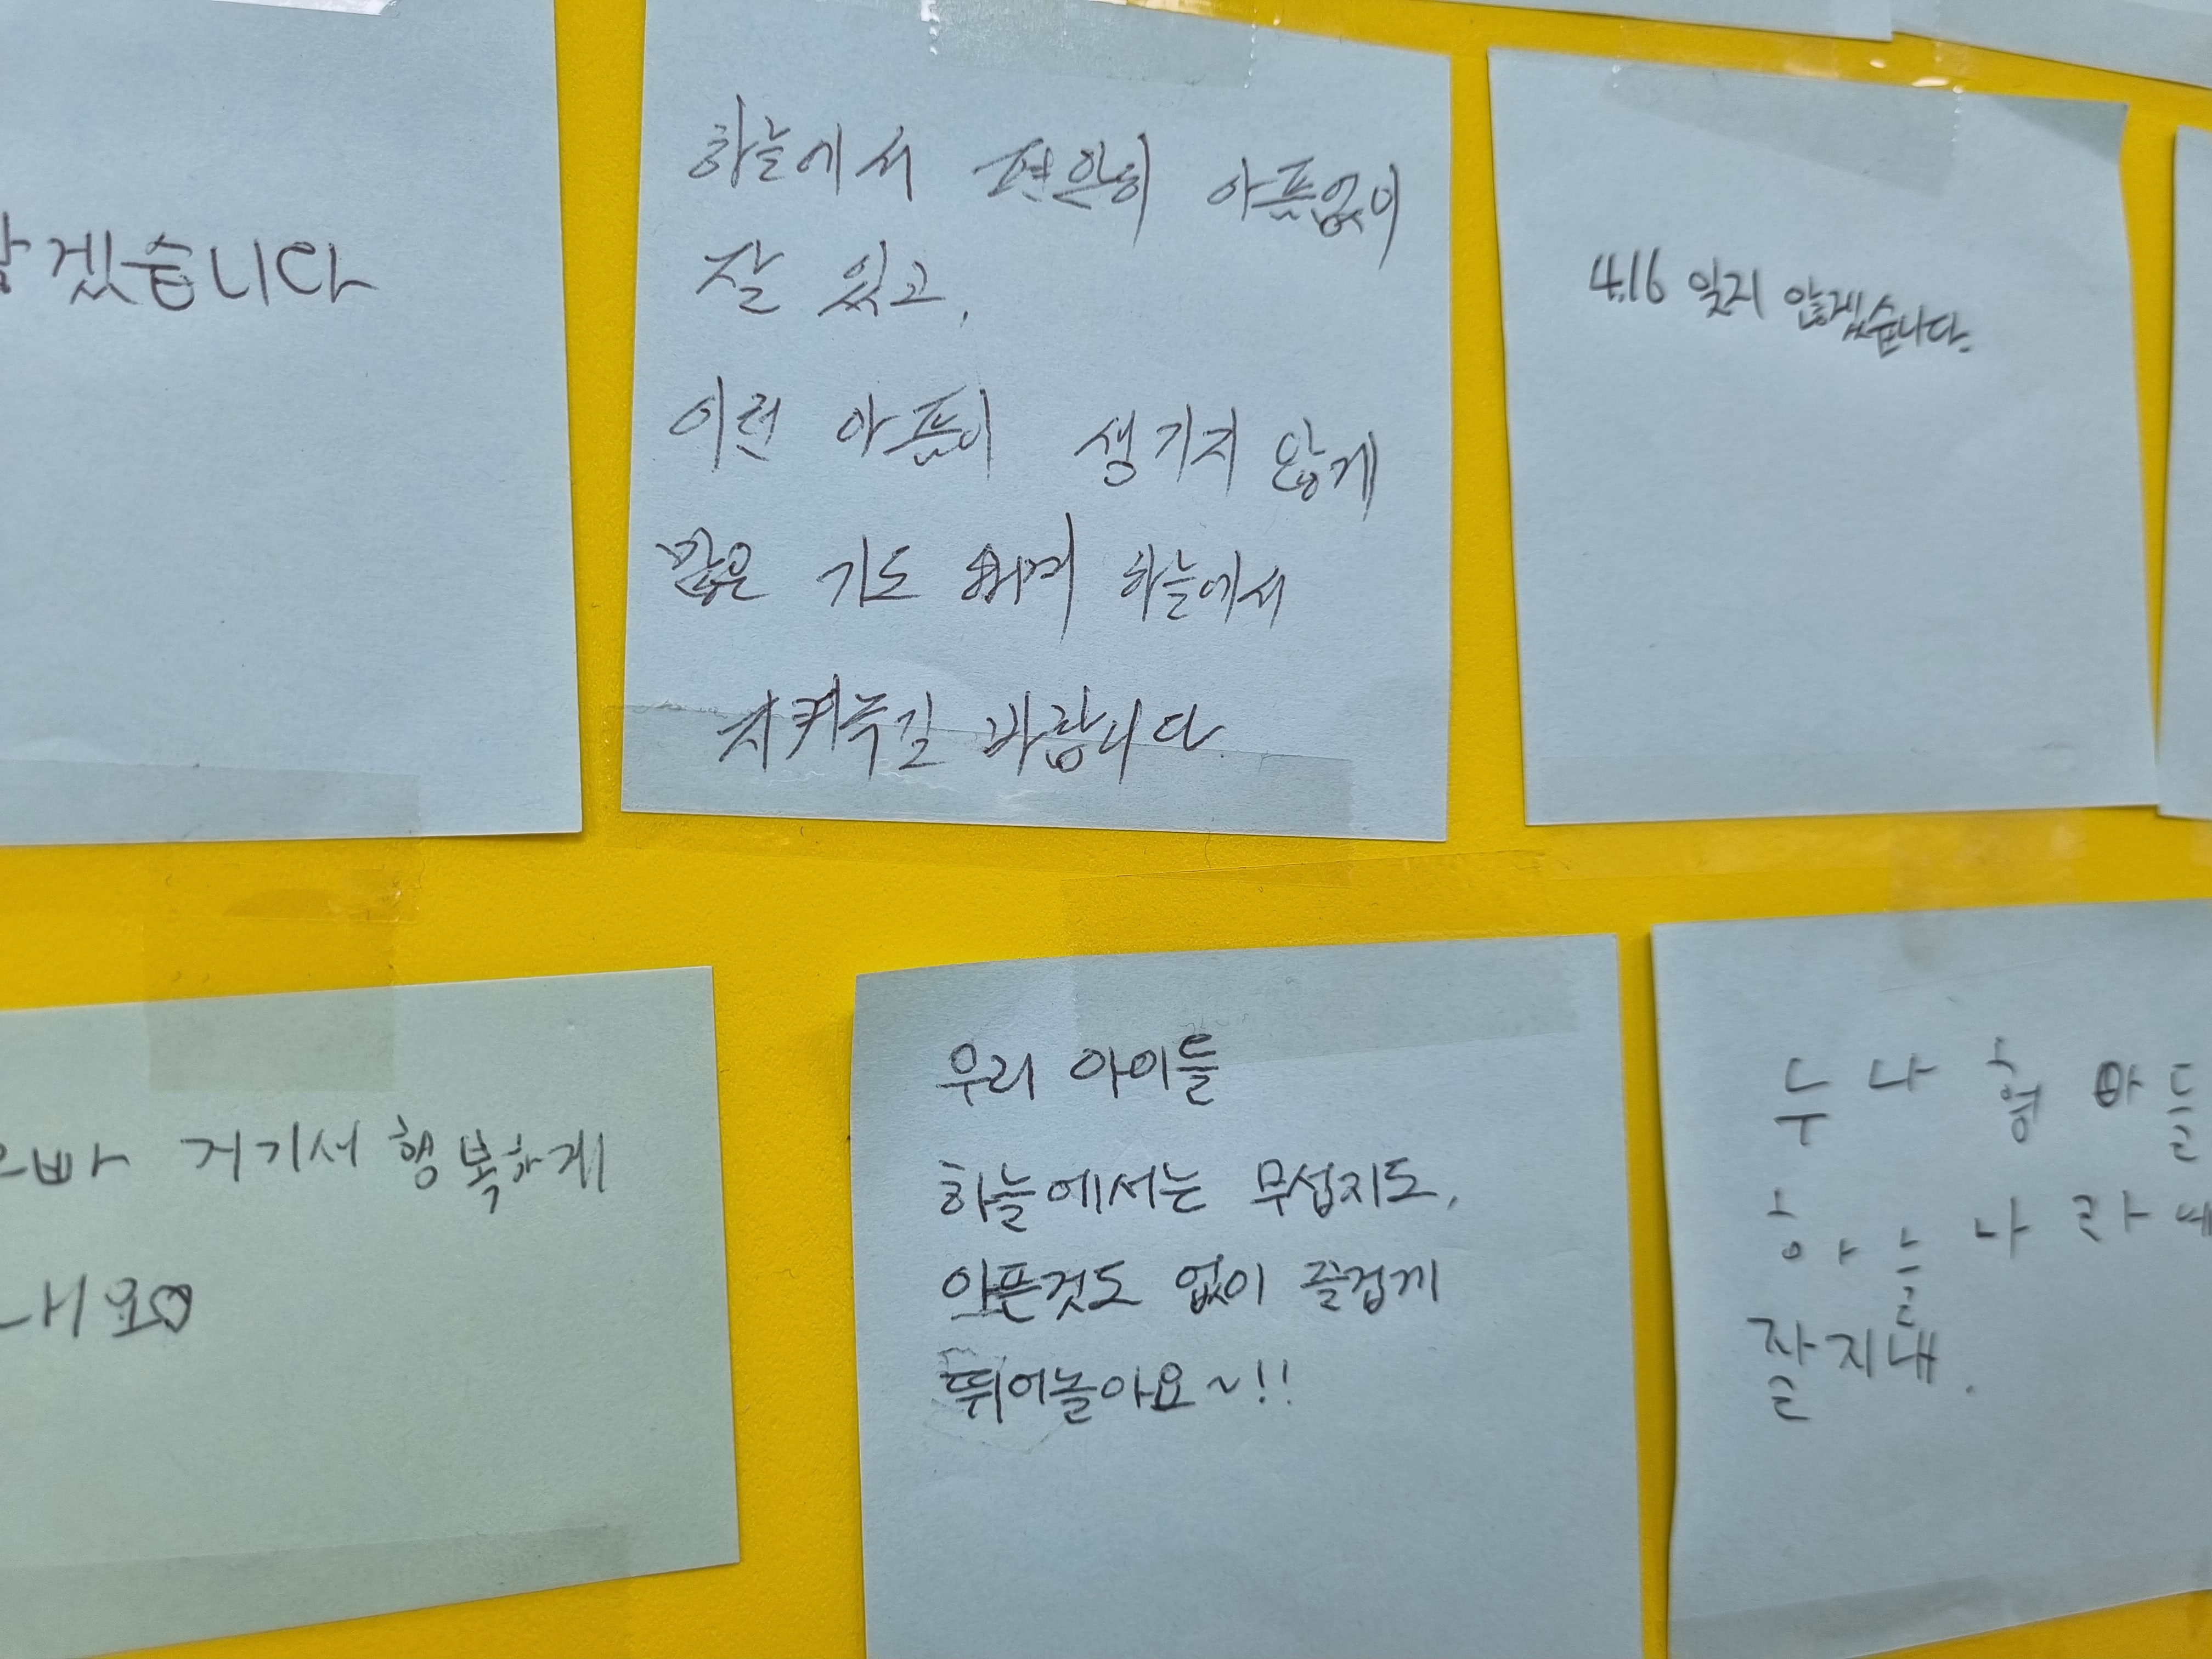 않겠습니다
하늘에서 편안히 아픔없이
잘 있고,
이런 아픔이 생기지 않게
많은 기도 하며 하늘에서
지켜주길 바랍니다.
4.16 잊지 않겠습니다.
오빠 거기서 행복하게
내요♡
우리 아이들
하늘에서는 무섭지도,
아픈것도 없이 즐겁게
뛰어놀아요~!!
누나 형아들
하늘나라에
잘지내.